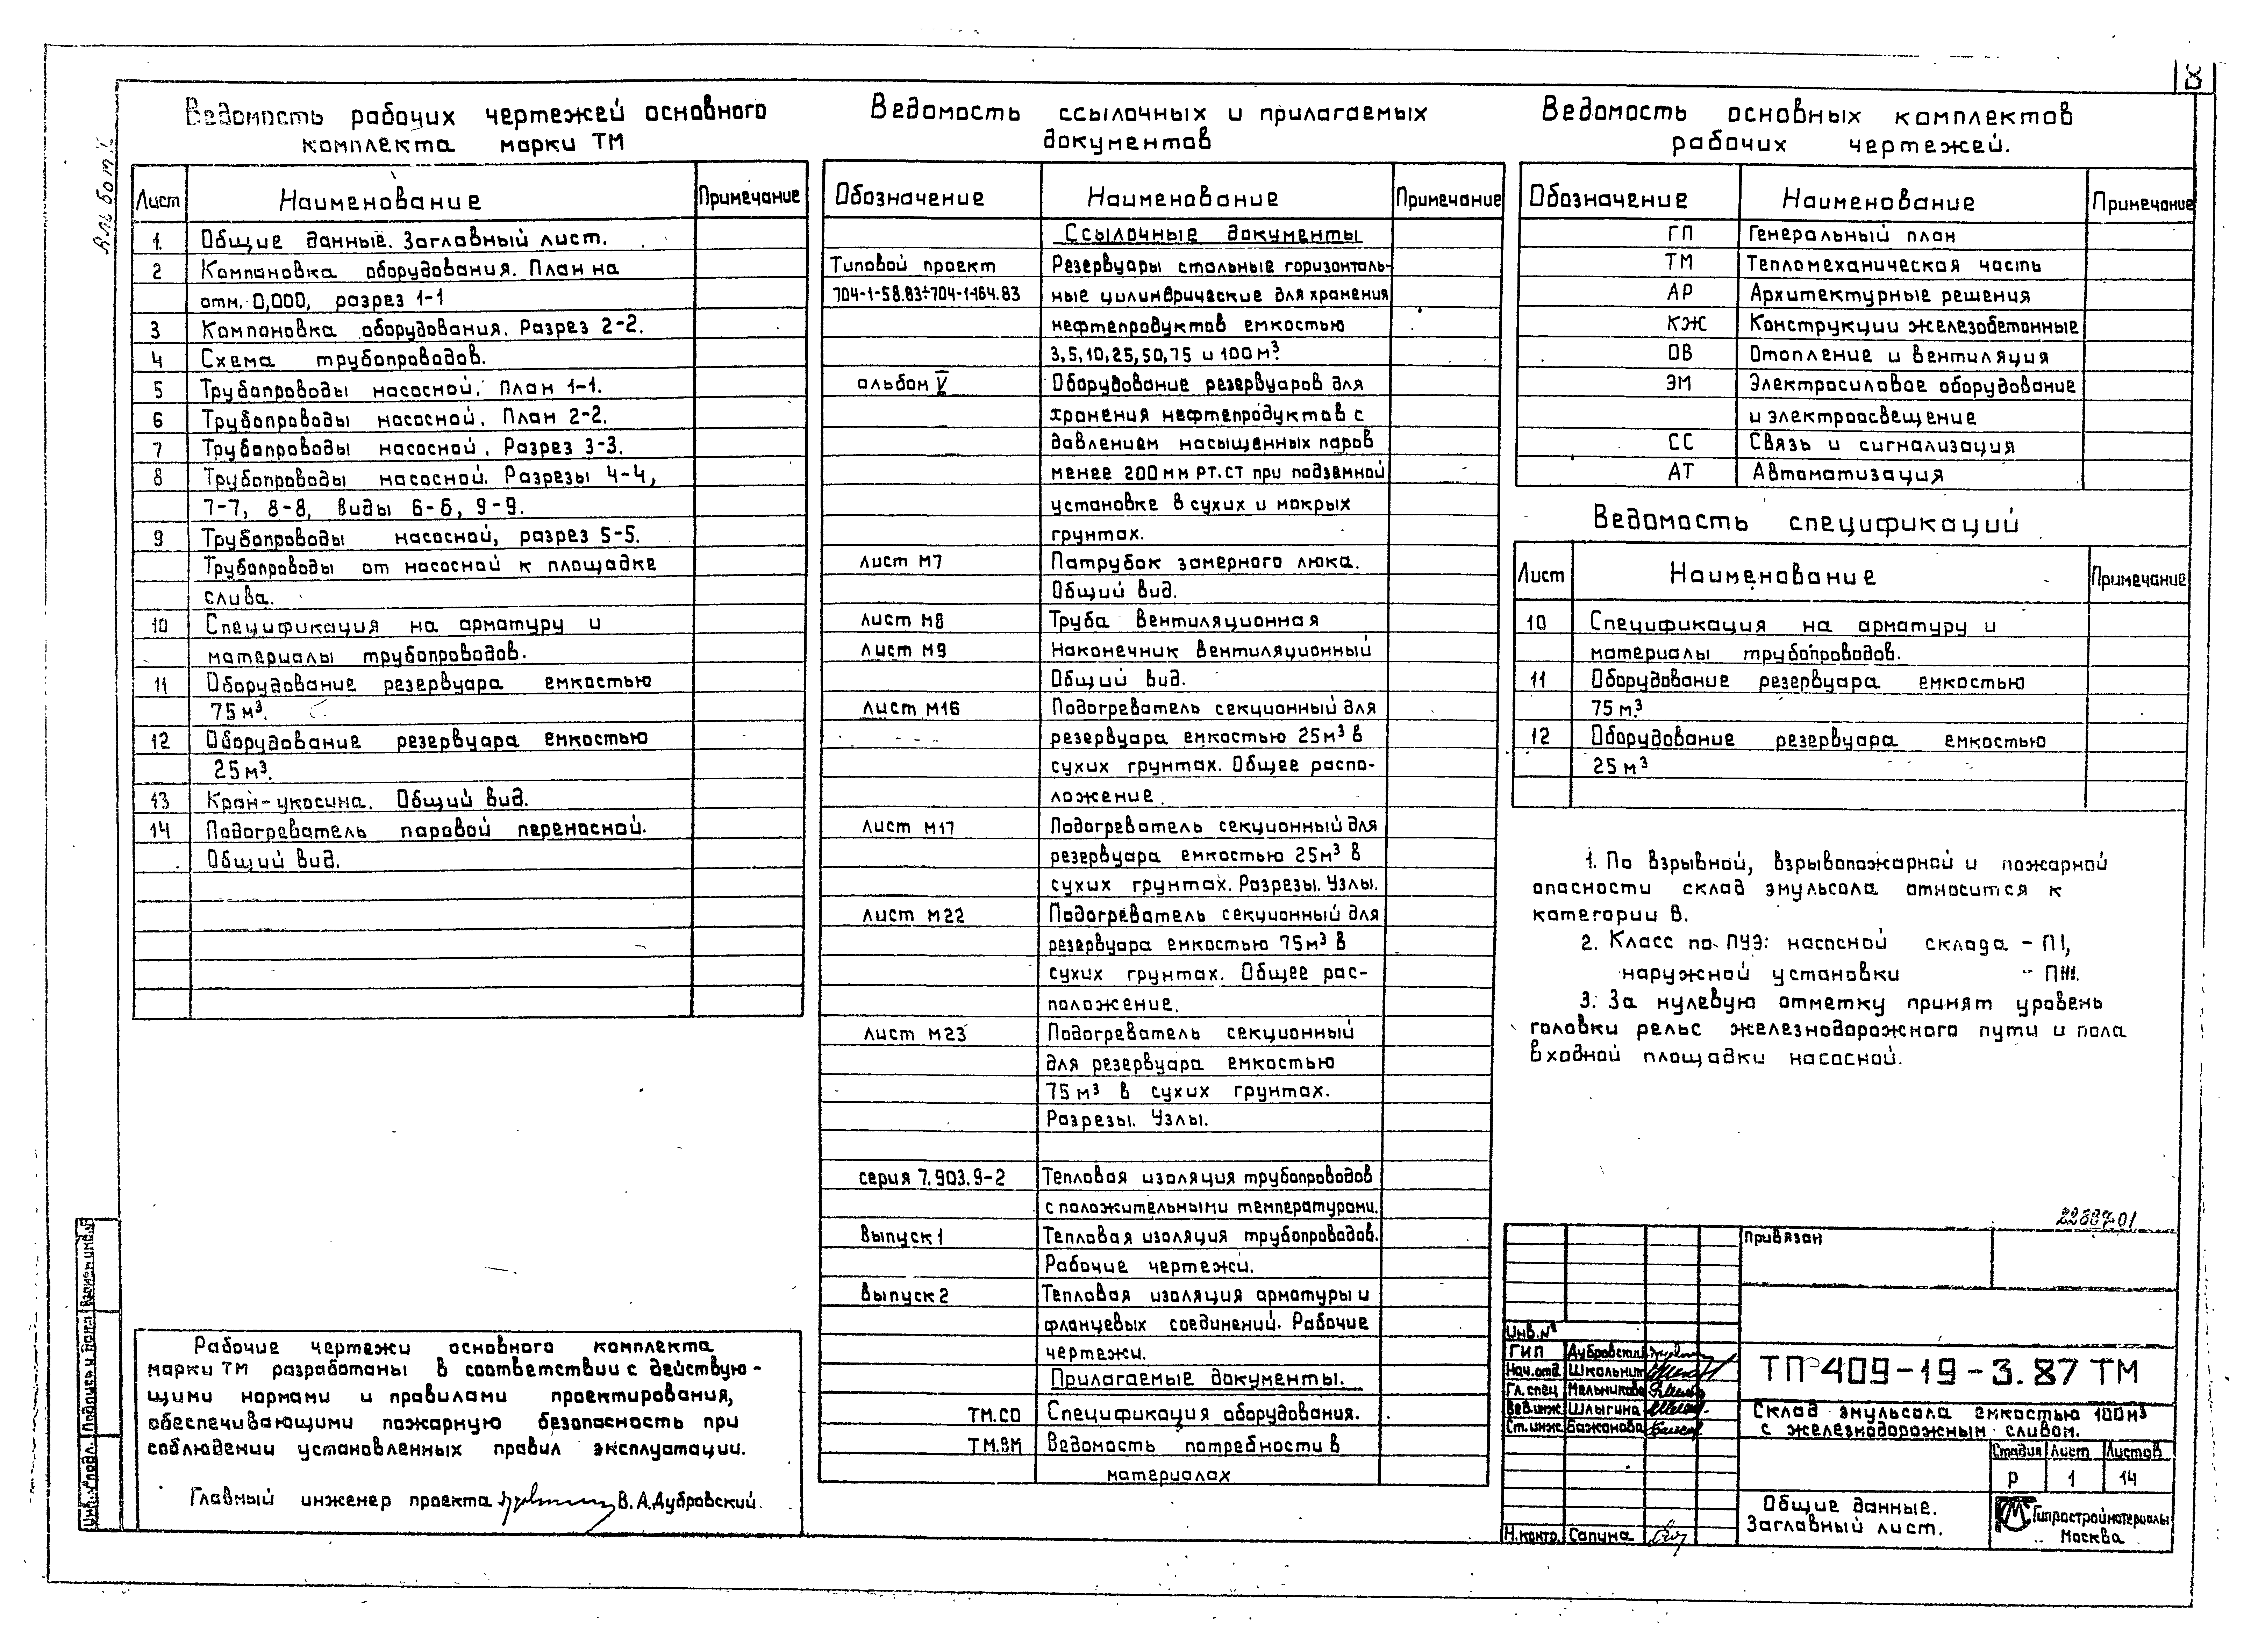 Альбом I
Ведомость рабочих чертежей основного
комплекта марки ТМ
Лист Наименование Примечание
1. Общие данные. Заглавный лист.
2 Компановка оборудования. План на
отм. 0,000, разрез 1-1
3 Компановка оборудования. Разрез 2-2.
4 Схема трубопроводов.
5 Трубопроводы насосной. План 1-1.
6 Трубопроводы насосной. План 2-2.
7 Трубопроводы насосной. Разрез 3-3.
8 Трубопроводы насосной. Разрезы 4-4,
7-7, 8-8, виды 6-6, 9-9.
9 Трубопроводы насосной, разрез 5-5.
Трубопроводы от насосной к площадке
слива.
10 Спецификация на арматуру и
материалы трубопроводов.
11 Оборудование резервуара емкостью
75 м³.
12 Оборудование резервуара емкостью
25 м³.
13 Кран-укосина. Общий вид.
14 Подогреватель паровой переносной.
Общий вид.
Рабочие чертежи основного комплекта
марки ТМ разработаны в соответствии с действую-
щими нормами и правилами проектирования,
обеспечивающими пожарную безопасность при
соблюдении установленных правил эксплуатации.
Главный инженер проекта В.А.Дубровский.
Ведомость ссылочных и прилагаемых
документов
Обозначение Наименование Примечание
Ссылочные документы
Типовой проект Резервуары стальные горизонталь-
704-1-58.83÷704-1-164.83 ные цилиндрические для хранения
нефтепродуктов емкостью
3,5,10,25,50,75 и 100 м³.
альбом V Оборудование резервуаров для
хранения нефтепродуктов с
давлением насыщенных паров
менее 200 мм РТ.СТ при подземной
установке в сухих и мокрых
грунтах.
Лист М7 Патрубок замерного люка.
Общий вид.
Лист М8 Труба вентиляционная
Лист М9 Наконечник вентиляционный
Общий вид.
Лист М16 Подогреватель секционный для
резервуара емкостью 25м³ в
сухих грунтах. Общее распо-
ложение.
Лист М17 Подогреватель секционный для
резервуара емкостью 25м³ в
сухих грунтах. Разрезы. Узлы.
Лист М22 Подогреватель секционный для
резервуара емкостью 75м³ в
сухих грунтах. Общее рас-
положение.
Лист М23 Подогреватель секционный
для резервуара емкостью
75 м³ в сухих грунтах.
Разрезы. Узлы.
серия 7.903.9-2 Тепловая изоляция трубопроводов
с положительными температурами.
Выпуск 1 Тепловая изоляция трубопроводов.
Рабочие чертежи.
Выпуск 2 Тепловая изоляция арматуры и
фланцевых соединений. Рабочие
чертежи.
Прилагаемые документы.
ТМ.СО Спецификация оборудования.
ТМ.ВМ Ведомость потребности в
материалах
Ведомость основных комплектов
рабочих чертежей.
Обозначение Наименование Примечание
ГП Генеральный план
ТМ Тепломеханическая часть
АР Архитектурные решения
КЖ Конструкции железобетонные
ОВ Отопление и вентиляция
ЭМ Электросиловое оборудование
и электроосвещение
СС Связь и сигнализация
АТ Автоматизация
Ведомость спецификаций
Лист Наименование Примечание
10 Спецификация на арматуру и
материалы трубопроводов.
11 Оборудование резервуара емкостью
75 м³
12 Оборудование резервуара емкостью
25 м³
1. По взрывной, взрывопожарной и пожарной
опасности склад эмульсола относится к
категории В.
2. Класс по ПУЭ: насосной склада - ПI,
наружной установки - ПIII.
3. За нулевую отметку принят уровень
головки рельс железнодорожного пути и пола
входной площадки насосной.
22887-01
Привязан
Инв.№
ГИП Дубровский
Нач.отд Школьник
Гл.спец Мельникова
Вед.инж. Шлыгина
Ст.инж. Бажанова
Н.контр. Сапуна
ТП 409-19-3.87 ТМ
Склад эмульсола емкостью 100м³
с железнодорожным сливом.
Стадия Лист Листов
Р 1 14
Общие данные.
Заглавный лист.
Гипростройматериалы
Москва
Инв.№подл. Подпись и дата Взамен инв.№